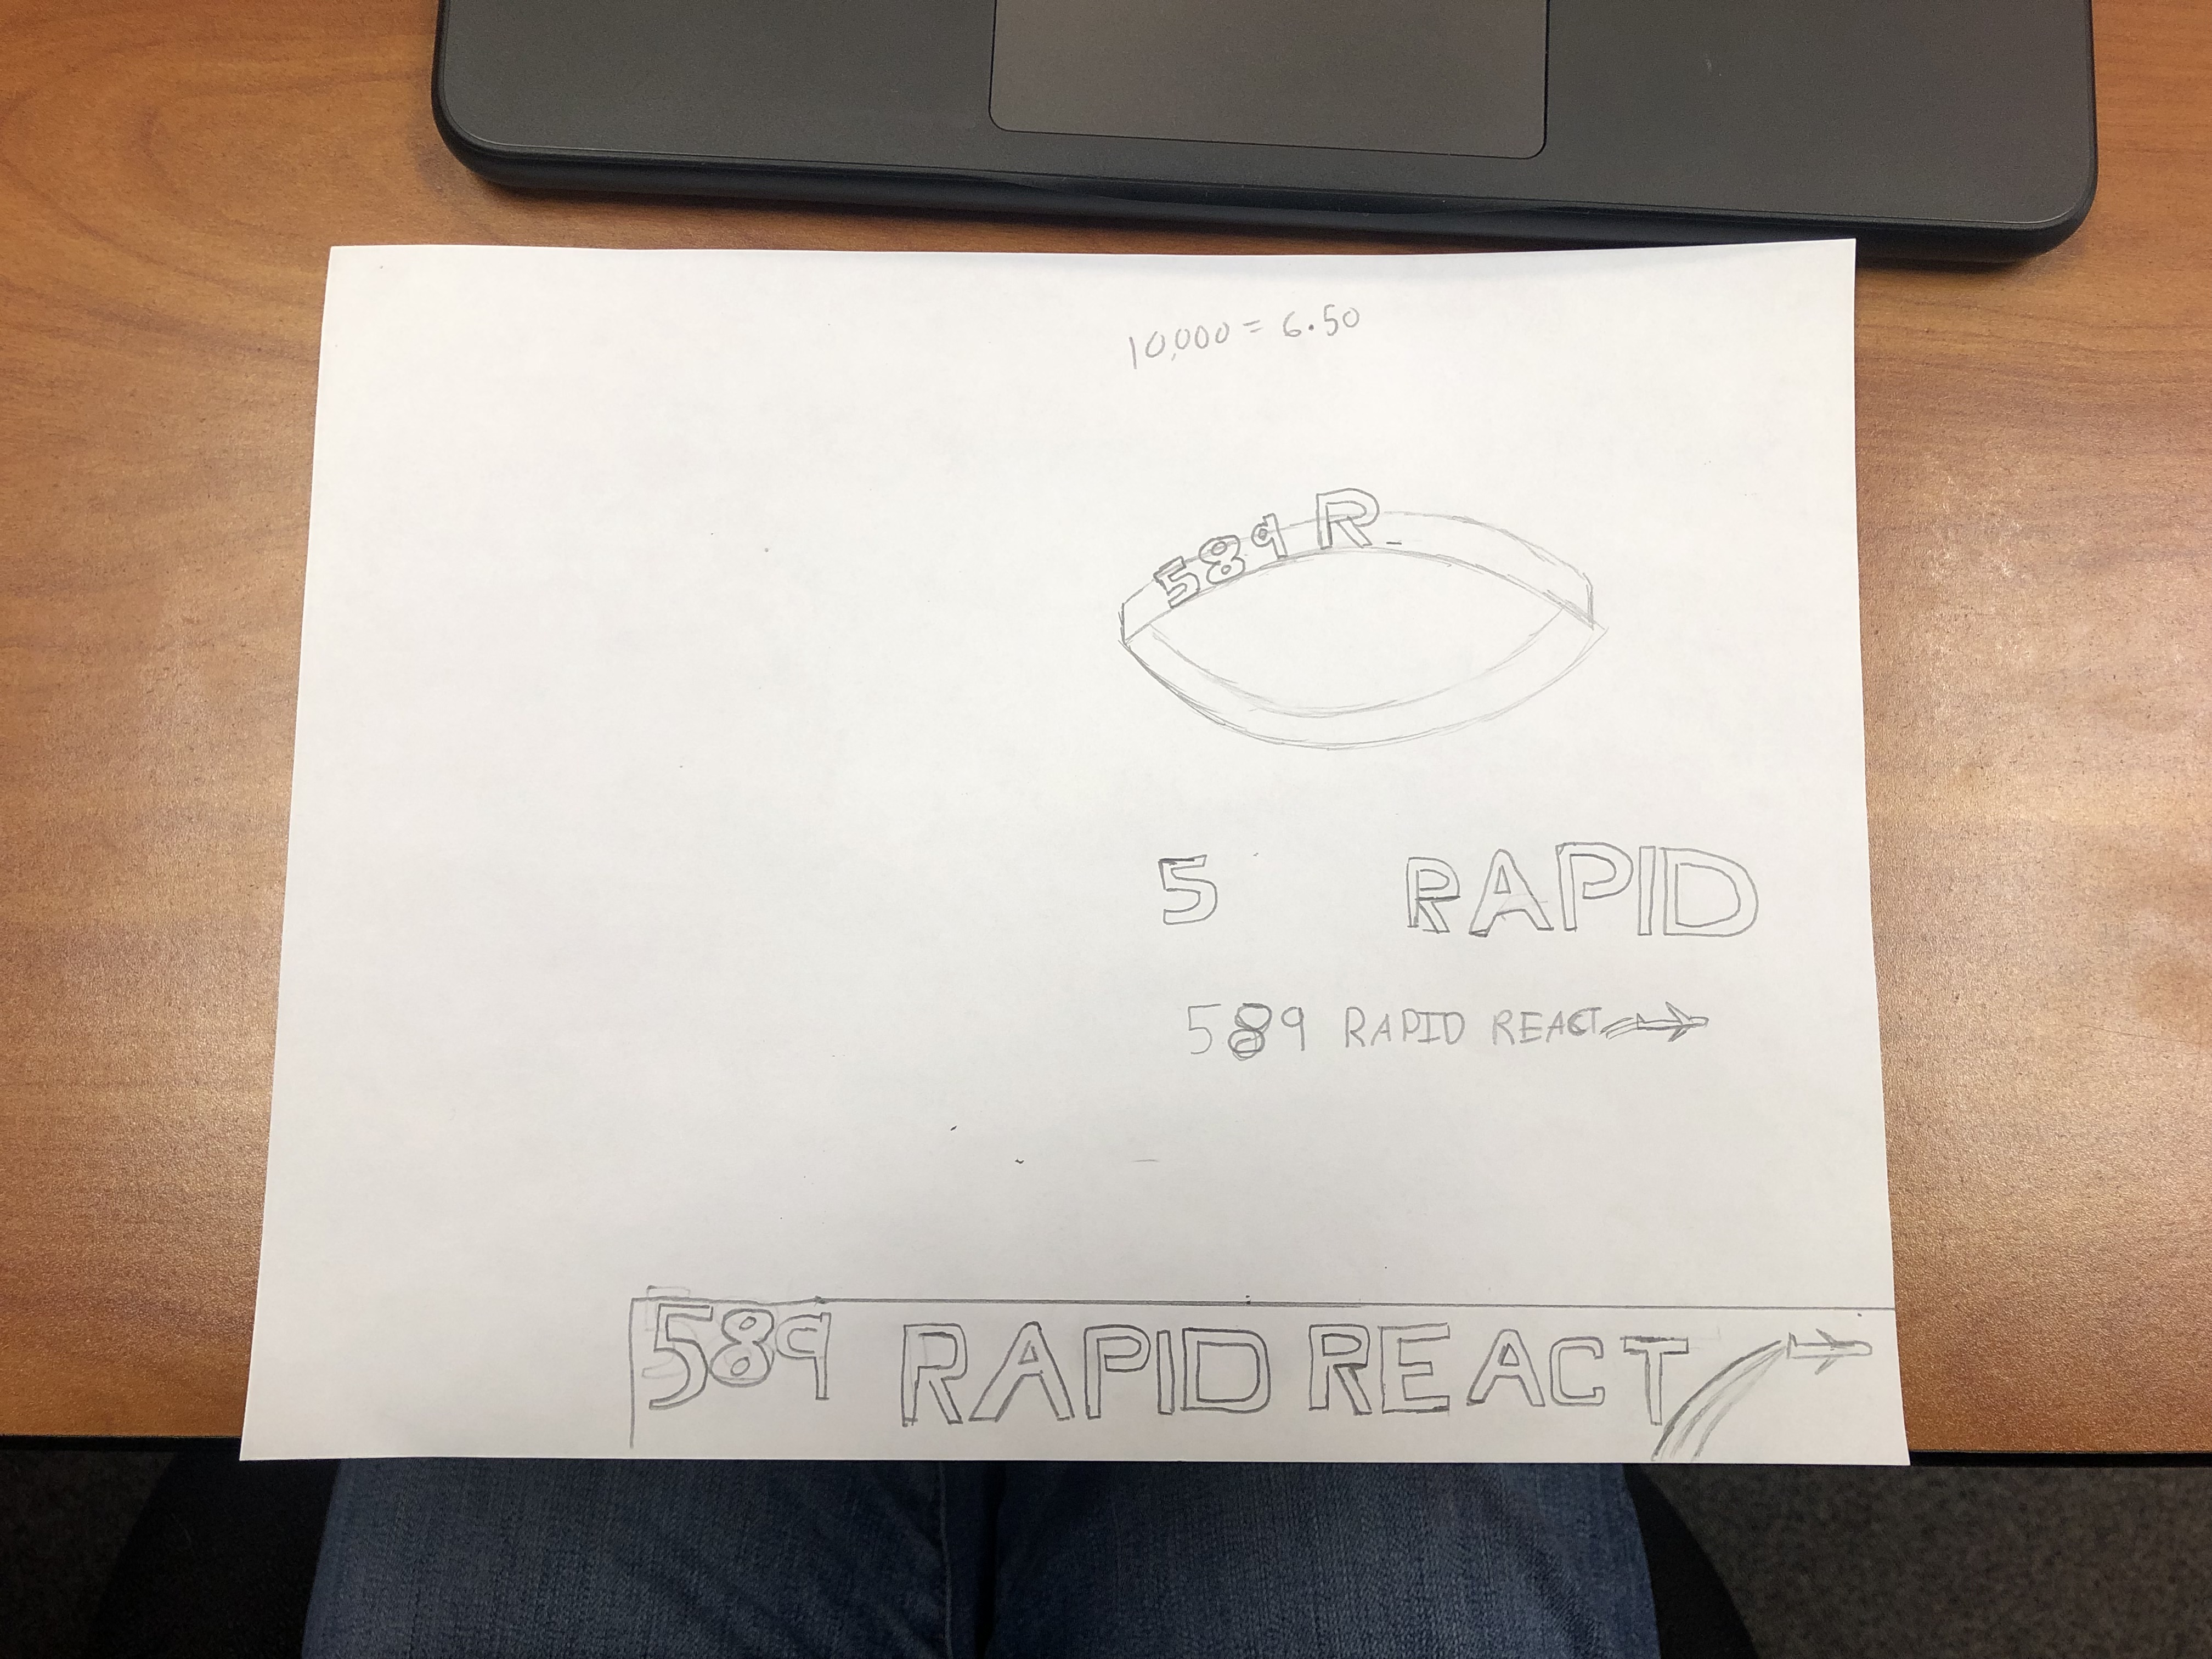 10,000 = 6.50
589 R
5 RAPID
589 RAPID REACT
589 RAPID REACT